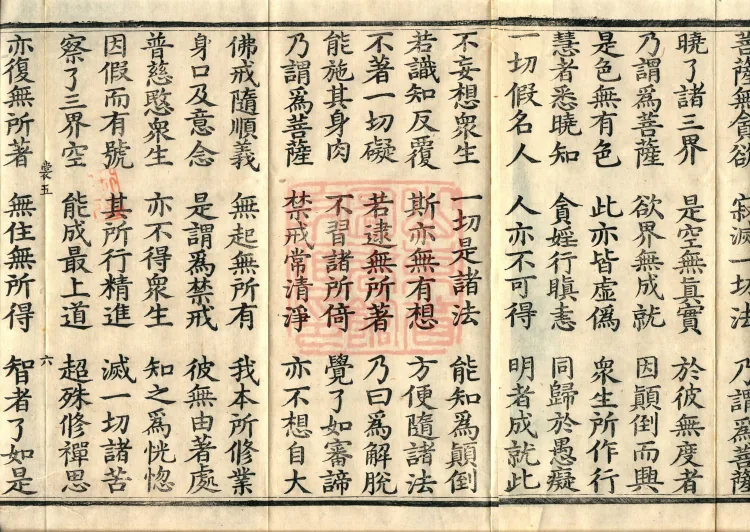 菩薩無貪欲 寂滅一切法 乃謂為菩薩
曉了諸三界 是空無真實 於彼無度者
乃謂為菩薩 欲界無成就 因顛倒而興
是色無有色 此亦皆虛偽 衆生所作行
慧者悉曉知 貪婬行瞋恚 同歸於愚癡
一切假名人 人亦不可得 明者成就此
不妄想衆生 一切是諸法 能知為顛倒
若識知反覆 斯亦無有想 方便隨諸法
不著一切礙 若逮無所著 乃曰為解脫
能施其身肉 不習諸所倚 覺了如審諦
乃謂為菩薩 禁戒常清淨 亦不想自大
佛戒隨順義 無起無所有 我本所修業
身口及意念 是謂為禁戒 彼無由著處
普慈愍衆生 亦不得衆生 知之為恍惚
因假而有號 其所行精進 滅一切諸苦
裳五 六
察了三界空 能成最上道 超殊修禪思
亦復無所著 無住無所得 智者了如是